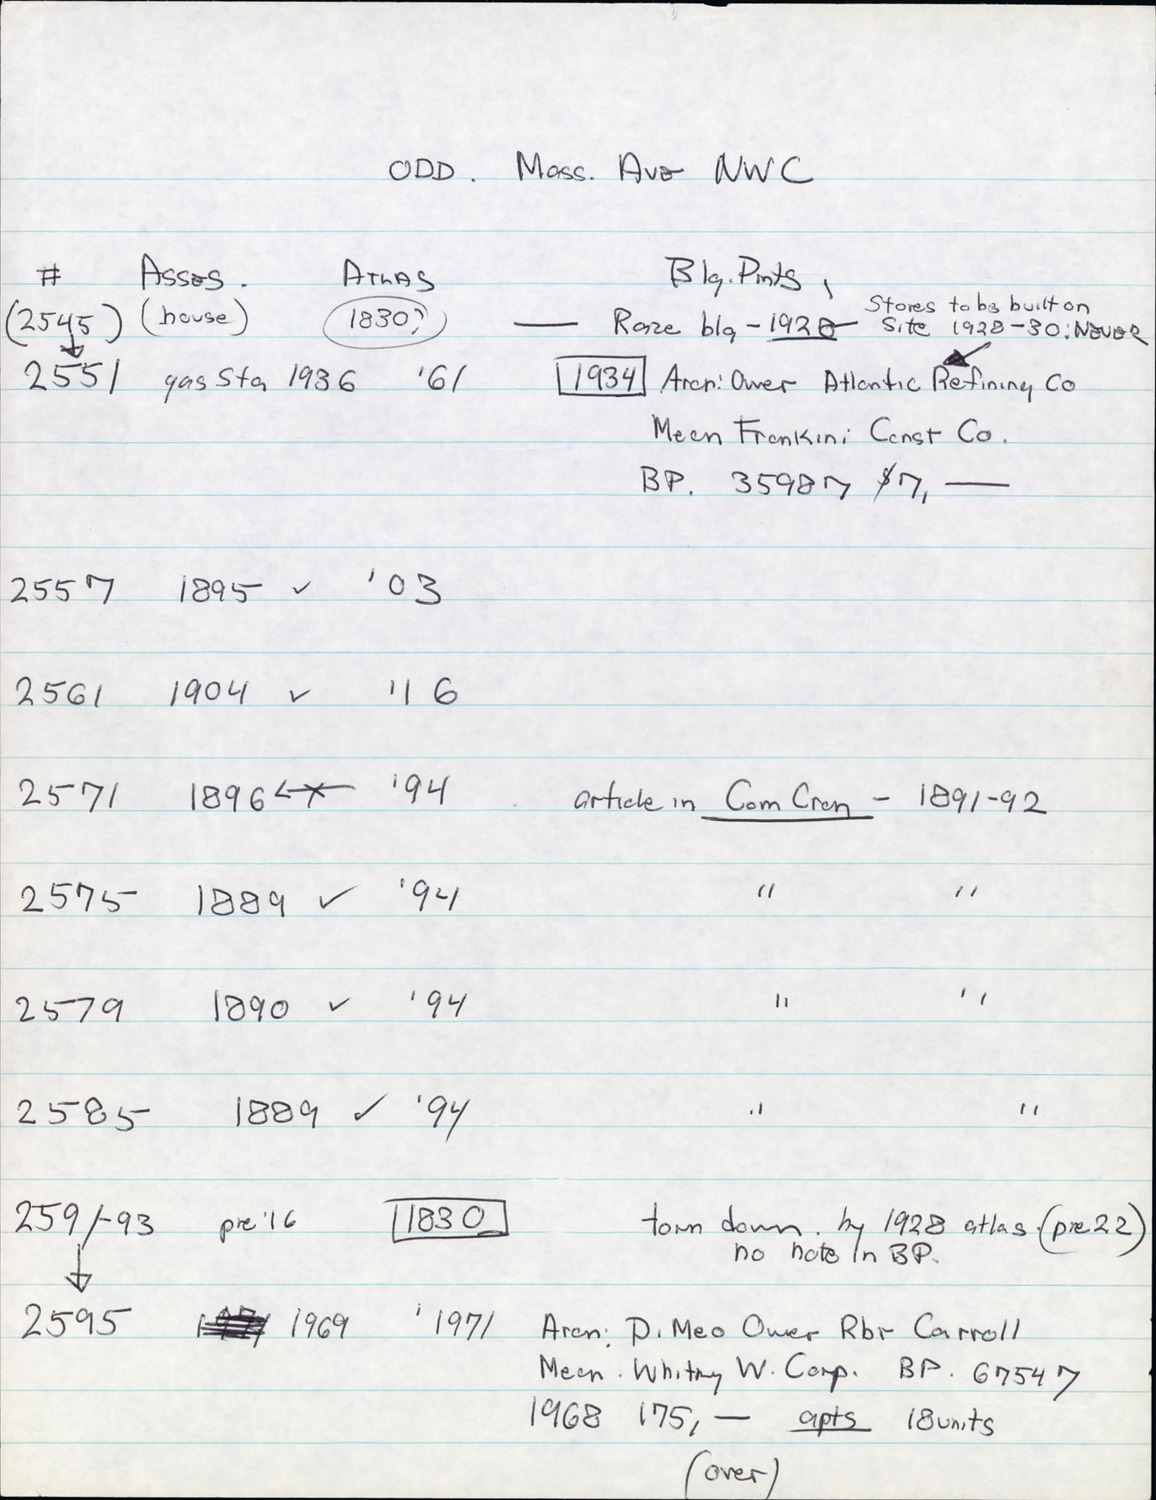 ODD. Mass. Ave NWC
# Asses. ATLAS Blg. Pmts,
(2545) (house) (1830?) — Raze blg - 1928 Stores to be built on
Site 1928-30: NEVER
2551 gas Sta 1936 '61 1934 Arch: Ower Atlantic Refining Co
Mech Frankini Const Co.
BP. 35987 $7, —
2557 1895 ✓ '03
2561 1904 ✓ '16
2571 1896 ← '94 article in Cam Cron - 1891-92
2575 1889 ✓ '94 " "
2579 1890 ✓ '94 " "
2585 1889 ✓ '94 " "
2591-93 pre '16 1830 torn down by 1928 atlas (pre 22)
no note in BP.
2595 1969 '1971 Arch: DiMeo Ower Rbr Carroll
Mech. Whitny W. Corp. BP. 67547
1968 175, — apts 18 units
(over)